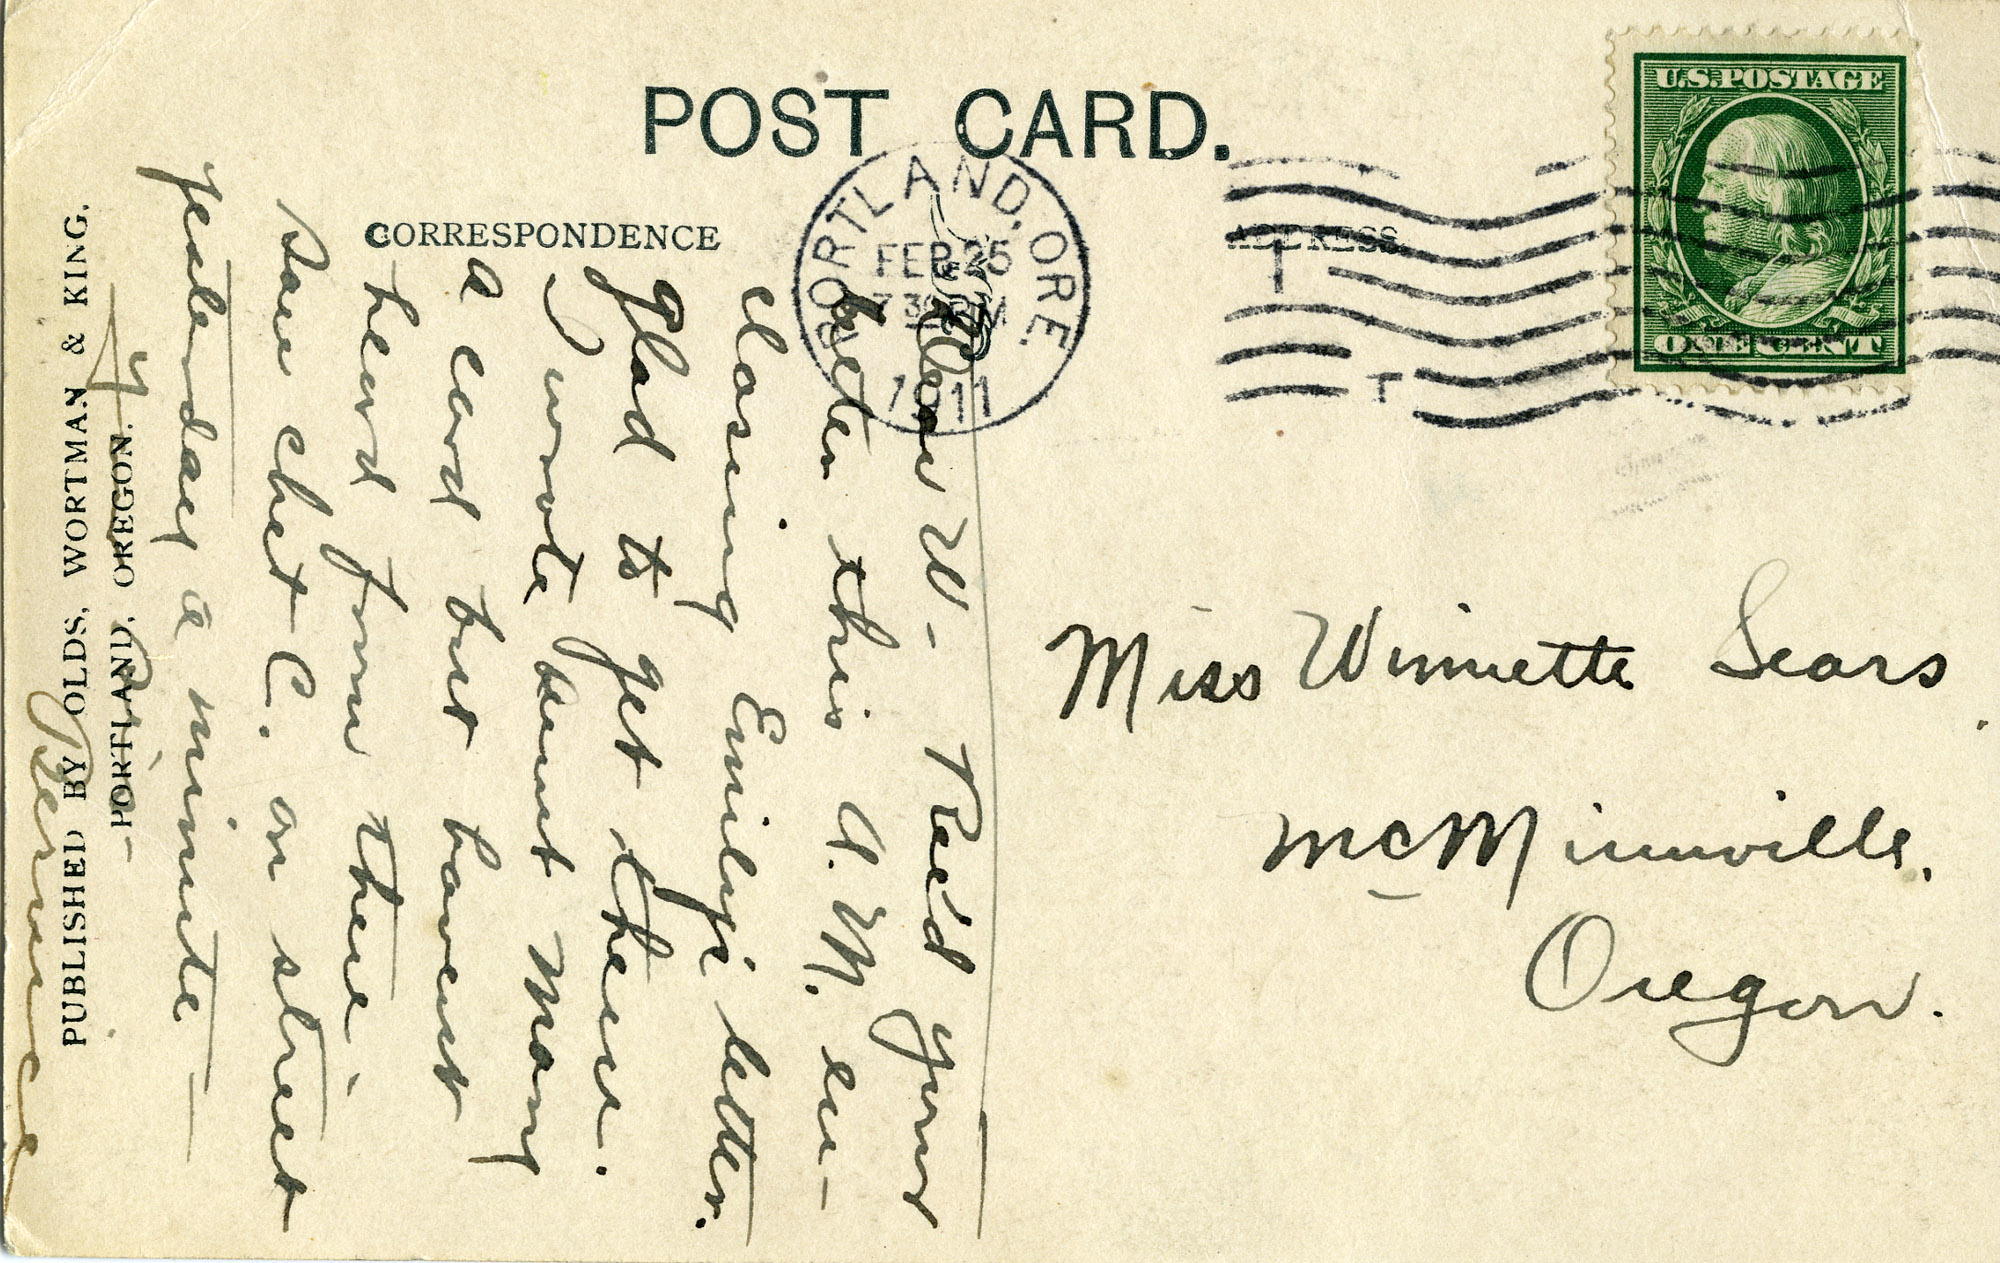 POST CARD.
CORRESPONDENCE
ADDRESS
U.S. POSTAGE
ONE CENT
PORTLAND, ORE.
FEB 25
7 30 PM
1911
Miss Winnette Sears
McMinnville.
Oregon.
Dear W- Rec'd your
letter this A.M. en-
closing Emily's letter.
Glad to get them.
I wrote Aunt Mary
a card but havent
heard from there.
Saw Chet C. on street
yesterday a minute-
Bernice
PUBLISHED BY OLDS, WORTMAN & KING,
PORTLAND, OREGON.